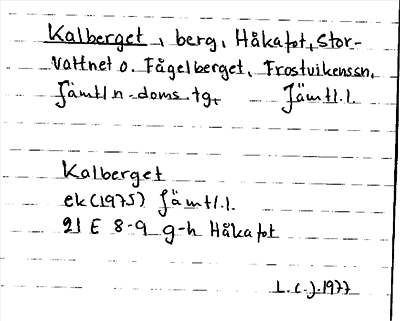 Kalberget, berg, Håkafot, Stor-
vattnet o. Fågelberget, Frostvikenssn,
Jämtl n-doms. tg, Jämtl.l.
Kalberget
ek (1975) Jämtl.l.
21 E 8-9 g-h Håkafot
L.C.J. 1977